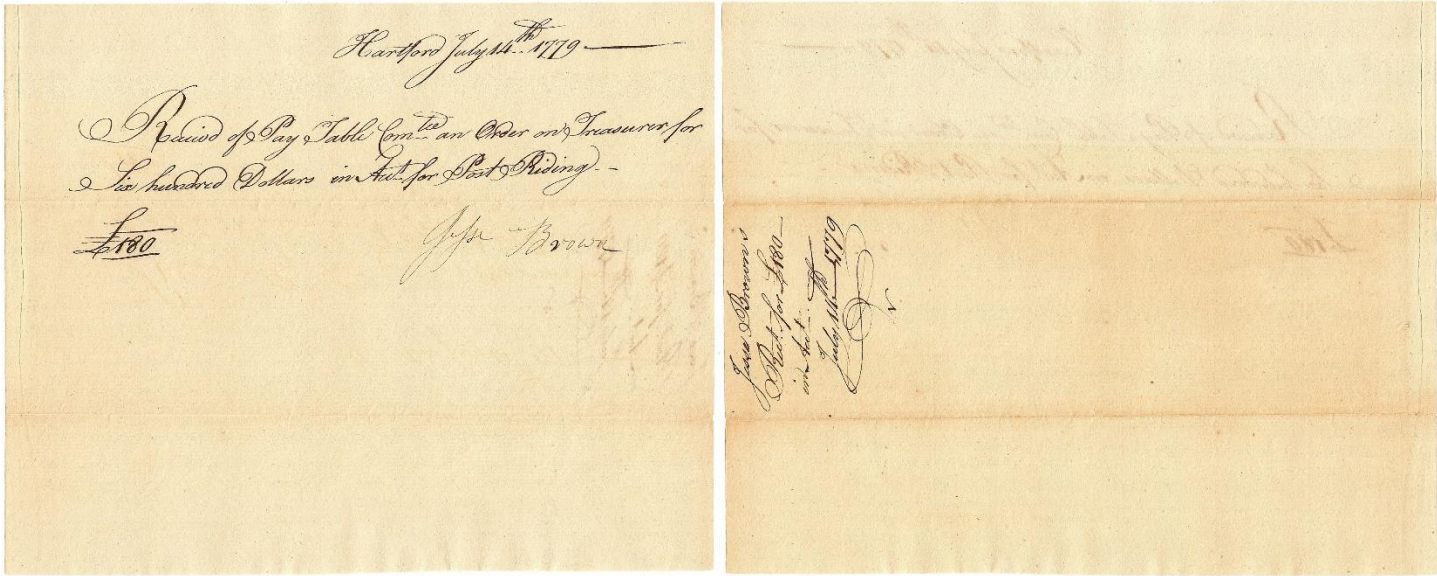 Hartford July 14th 1779
Receivd of Pay Table Comtee an Order on Treasurer for
Six hundred Dollars in Acct. for Post Riding.
£180
Jesse Brown
Jesse Brown's
Rect. for £180
in Acct.
July 14th 1779